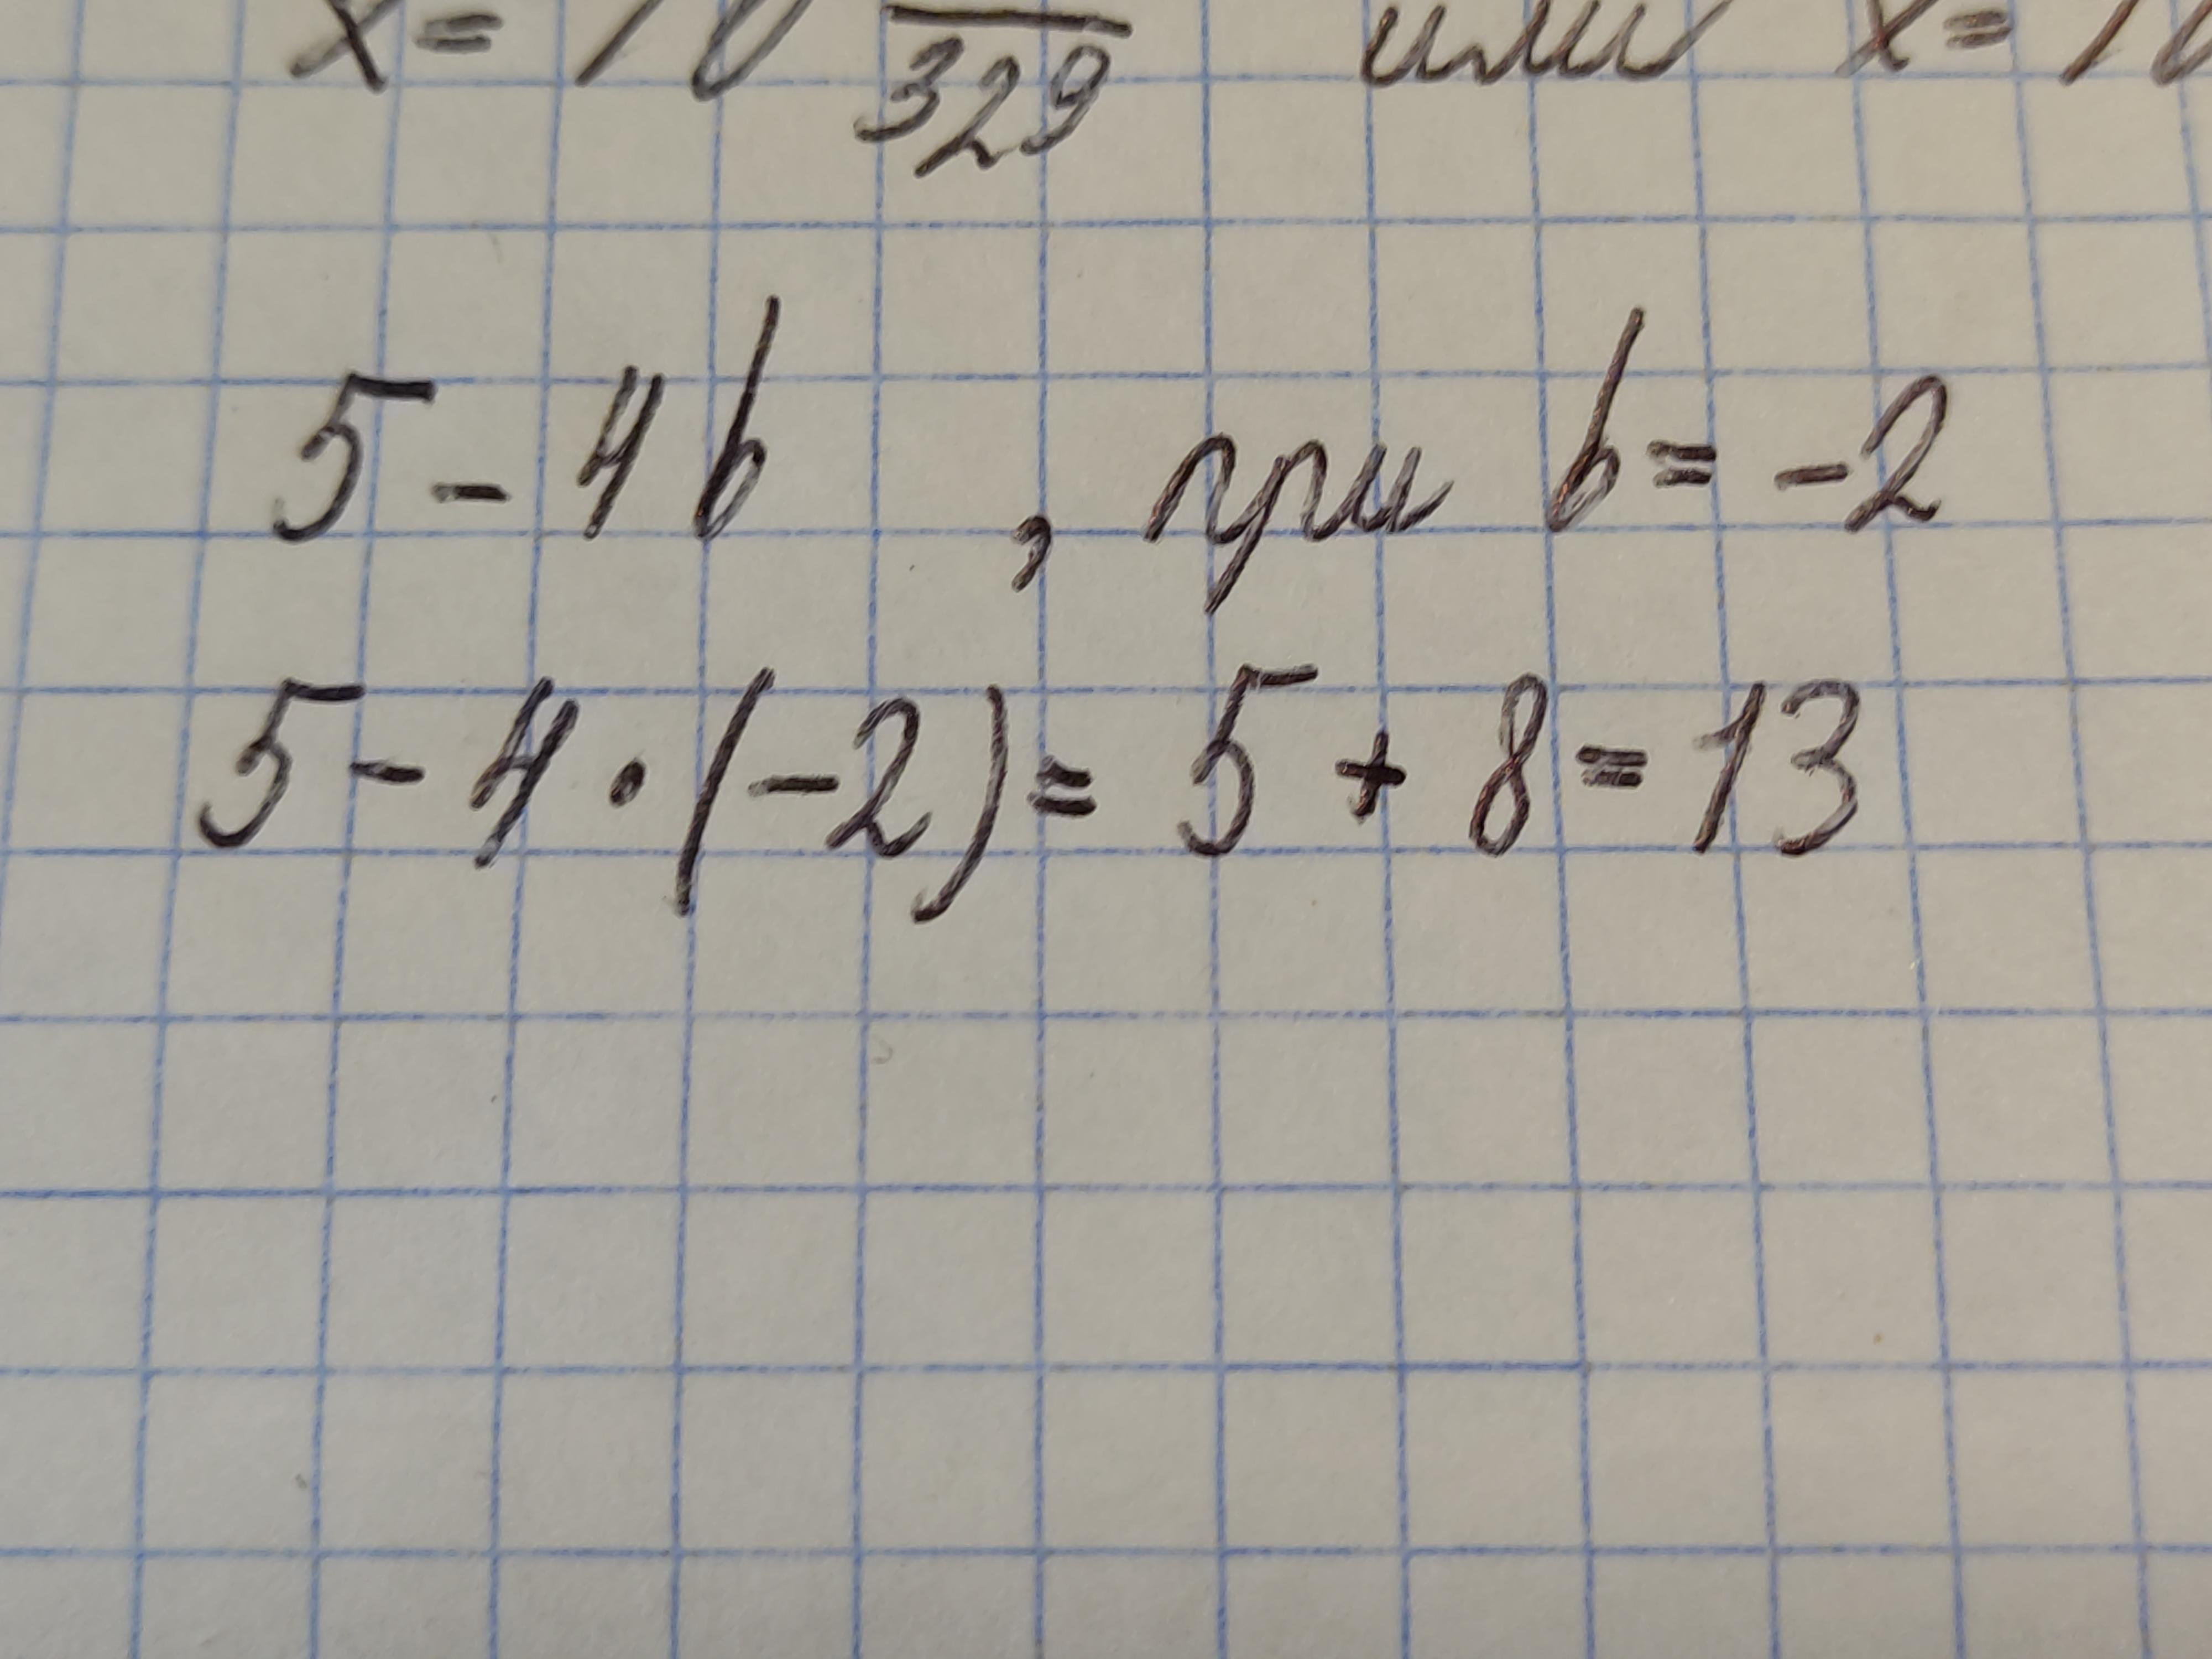 x = 10 329 или x = 10
5 - 4b , при b = -2
5 - 4 · (-2) = 5 + 8 = 13